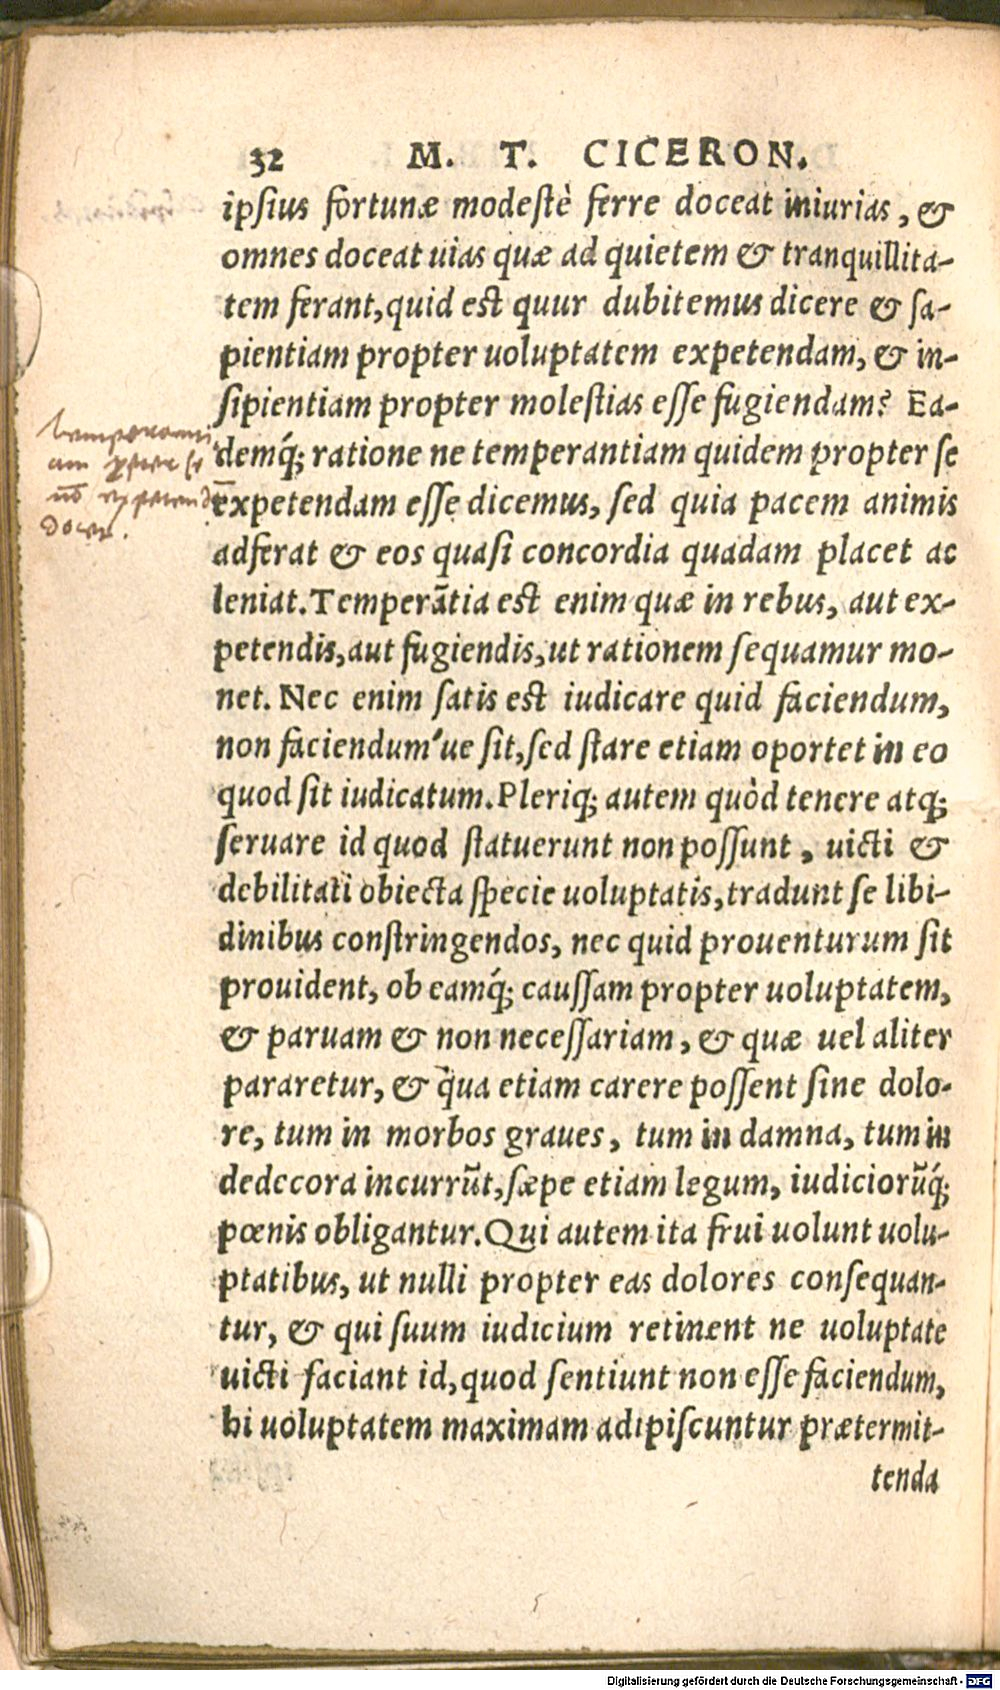 32 M. T. CICERON.
ipsius fortunæ modestè ferre doceat iniurias, &
omnes doceat uias quæ ad quietem & tranquillita-
tem ferant, quid est quur dubitemus dicere & sa-
pientiam propter uoluptatem expetendam, & in-
sipientiam propter molestias esse fugiendam? Ea-
demq́; ratione ne temperantiam quidem propter se
expetendam esse dicemus, sed quia pacem animis
adferat & eos quasi concordia quadam placet ac
leniat. Temperãtia est enim quæ in rebus, aut ex-
petendis, aut fugiendis, ut rationem sequamur mo-
net. Nec enim satis est iudicare quid faciendum,
non faciendum'ue sit, sed stare etiam oportet in eo
quod sit iudicatum. Pleriq; autem quòd tenere atq;
seruare id quod statuerunt non possunt, uicti &
debilitati obiecta specie uoluptatis, tradunt se libi-
dinibus constringendos, nec quid prouenturum sit
prouident, ob eamq́; caussam propter uoluptatem,
& paruam & non necessariam, & quæ uel aliter
pararetur, & qua etiam carere possent sine dolo-
re, tum in morbos graues, tum in damna, tum in
dedecora incurrũt, sæpe etiam legum, iudiciorũq́;
pœnis obligantur. Qui autem ita frui uolunt uolu-
ptatibus, ut nulli propter eas dolores consequan-
tur, & qui suum iudicium retinent ne uoluptate
uicti faciant id, quod sentiunt non esse faciendum,
hi uoluptatem maximam adipiscuntur prætermit-
tenda
temperanti
am propter se
nõ expetendã
docet.
Digitalisierung gefördert durch die Deutsche Forschungsgemeinschaft - DFG